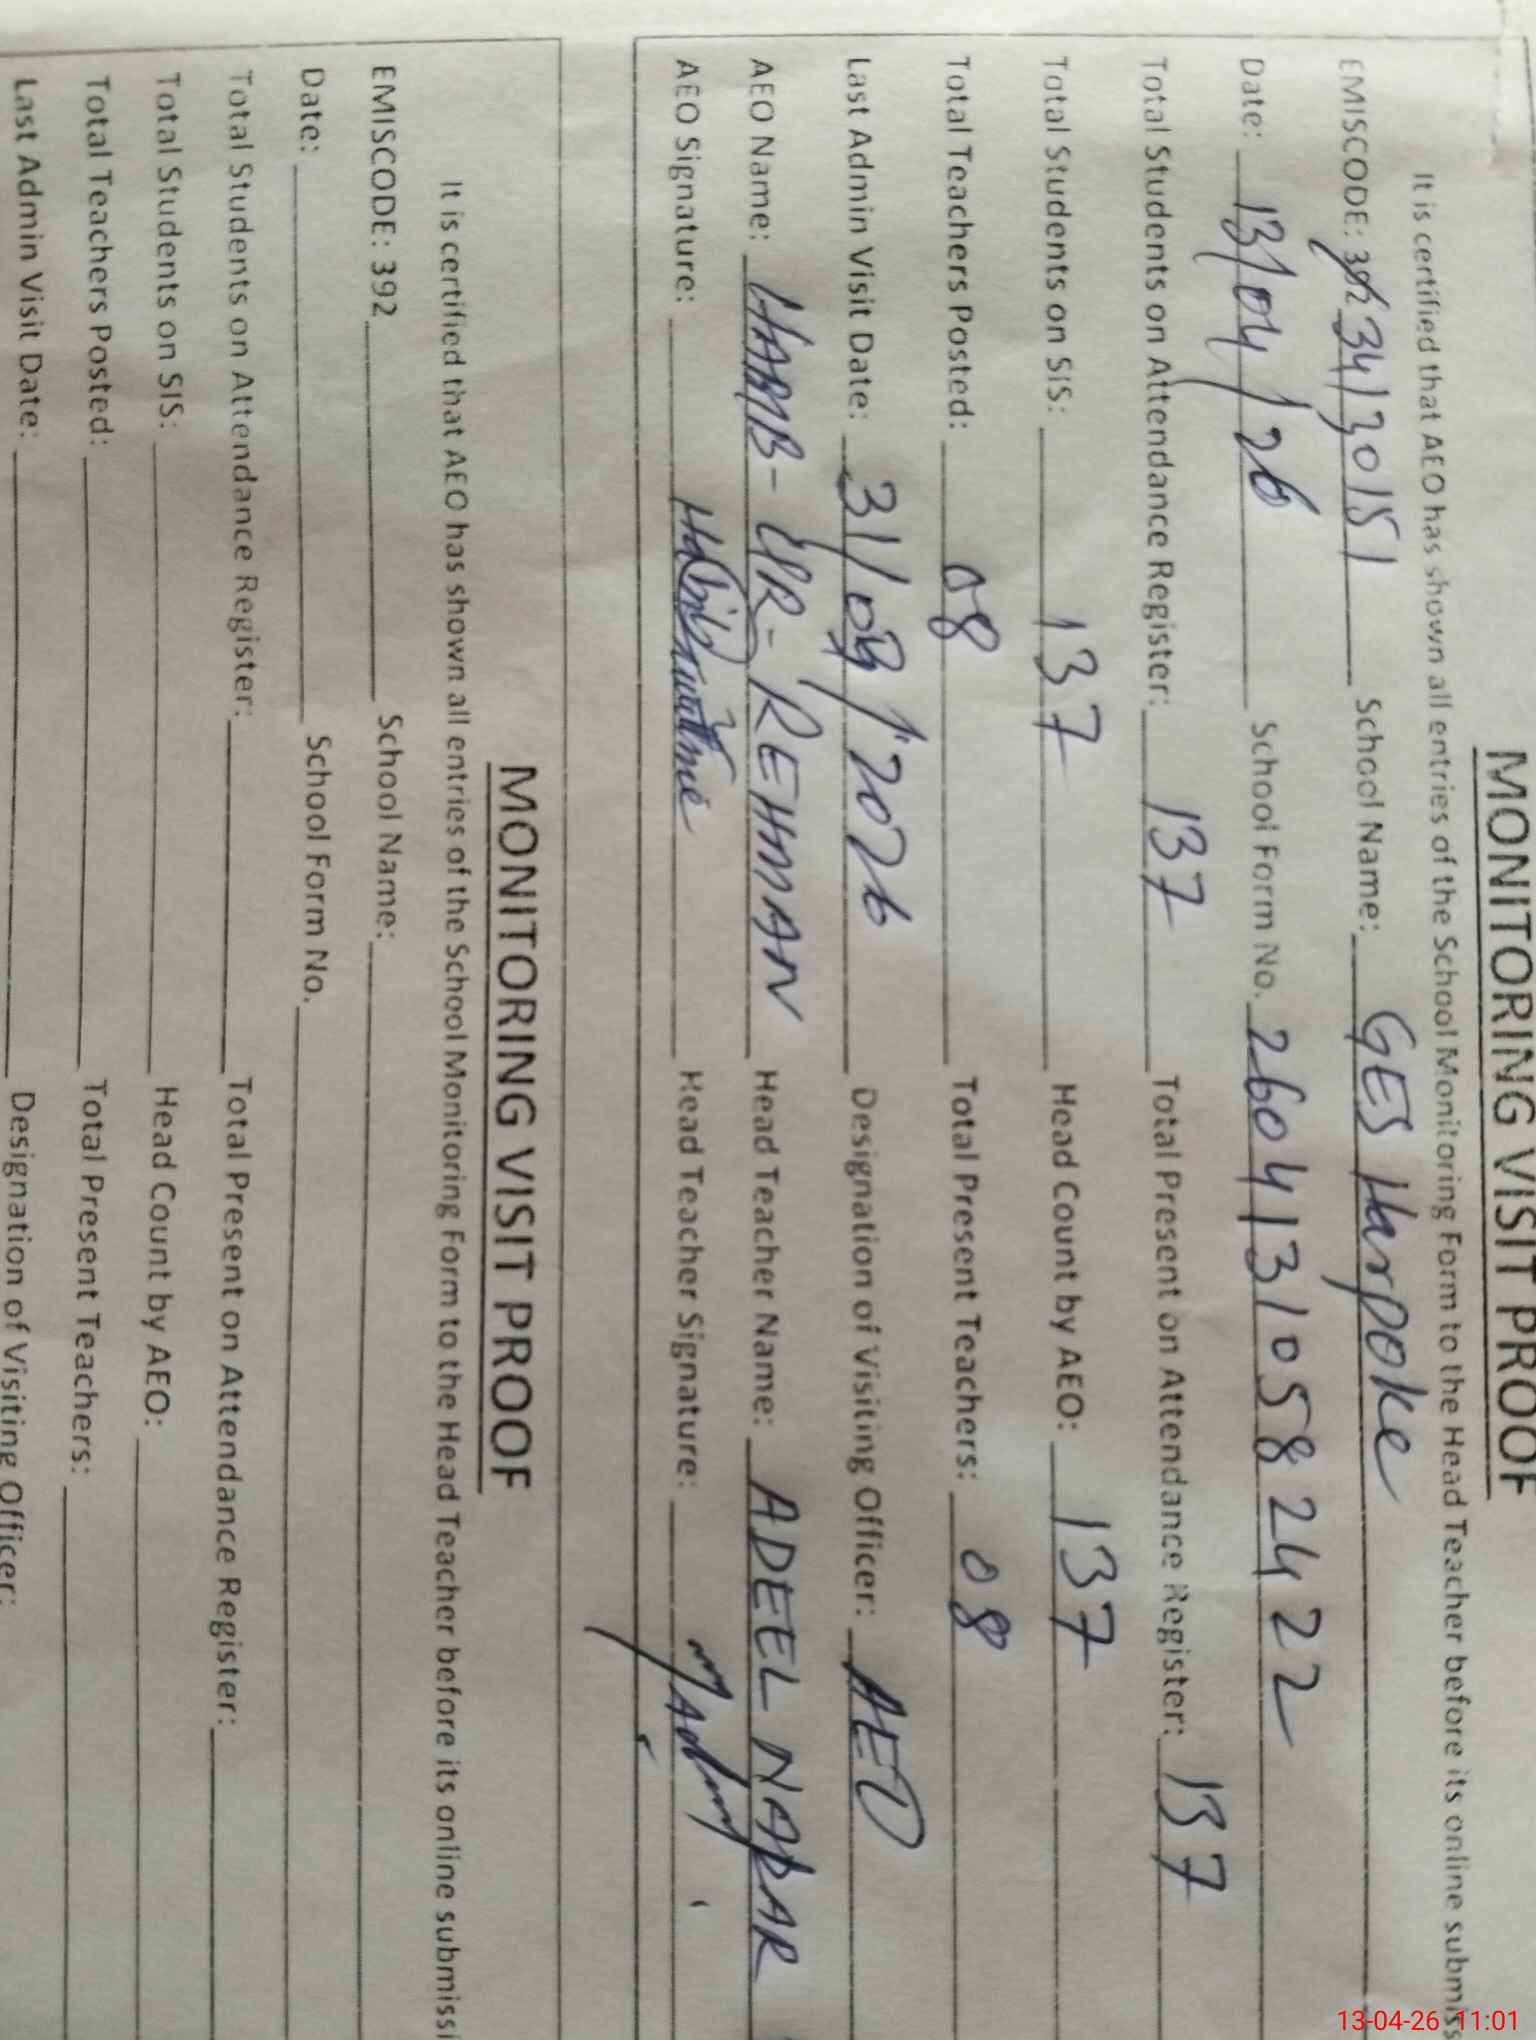 MONITORING VISIT PROOF
It is certified that AEO has shown all entries of the School Monitoring Form to the Head Teacher before its online submis
EMISCODE: 392 34130151 School Name: GES Harpoke
Date: 13/04/26 School Form No. 2604131058 2422
Total Students on Attendance Register: 137 Total Present on Attendance Register: 137
Total Students on SIS: 137 Head Count by AEO: 137
Total Teachers Posted: 08 Total Present Teachers: 08
Last Admin Visit Date: 31/03/2026 Designation of Visiting Officer: AEO
AEO Name: HABIB-UR-REHMAN Head Teacher Name: ADEEL
AEO Signature: Head Teacher Signature:
MONITORING VISIT PROOF
It is certified that AEO has shown all entries of the School Monitoring Form to the Head Teacher before its online submissi
EMISCODE: 392 School Name:
Date: School Form No.
Total Students on Attendance Register: Total Present on Attendance Register:
Total Students on SIS: Head Count by AEO:
Total Teachers Posted: Total Present Teachers:
Last Admin Visit Date: Designation of Visiting Officer:
13-04-26 11:01